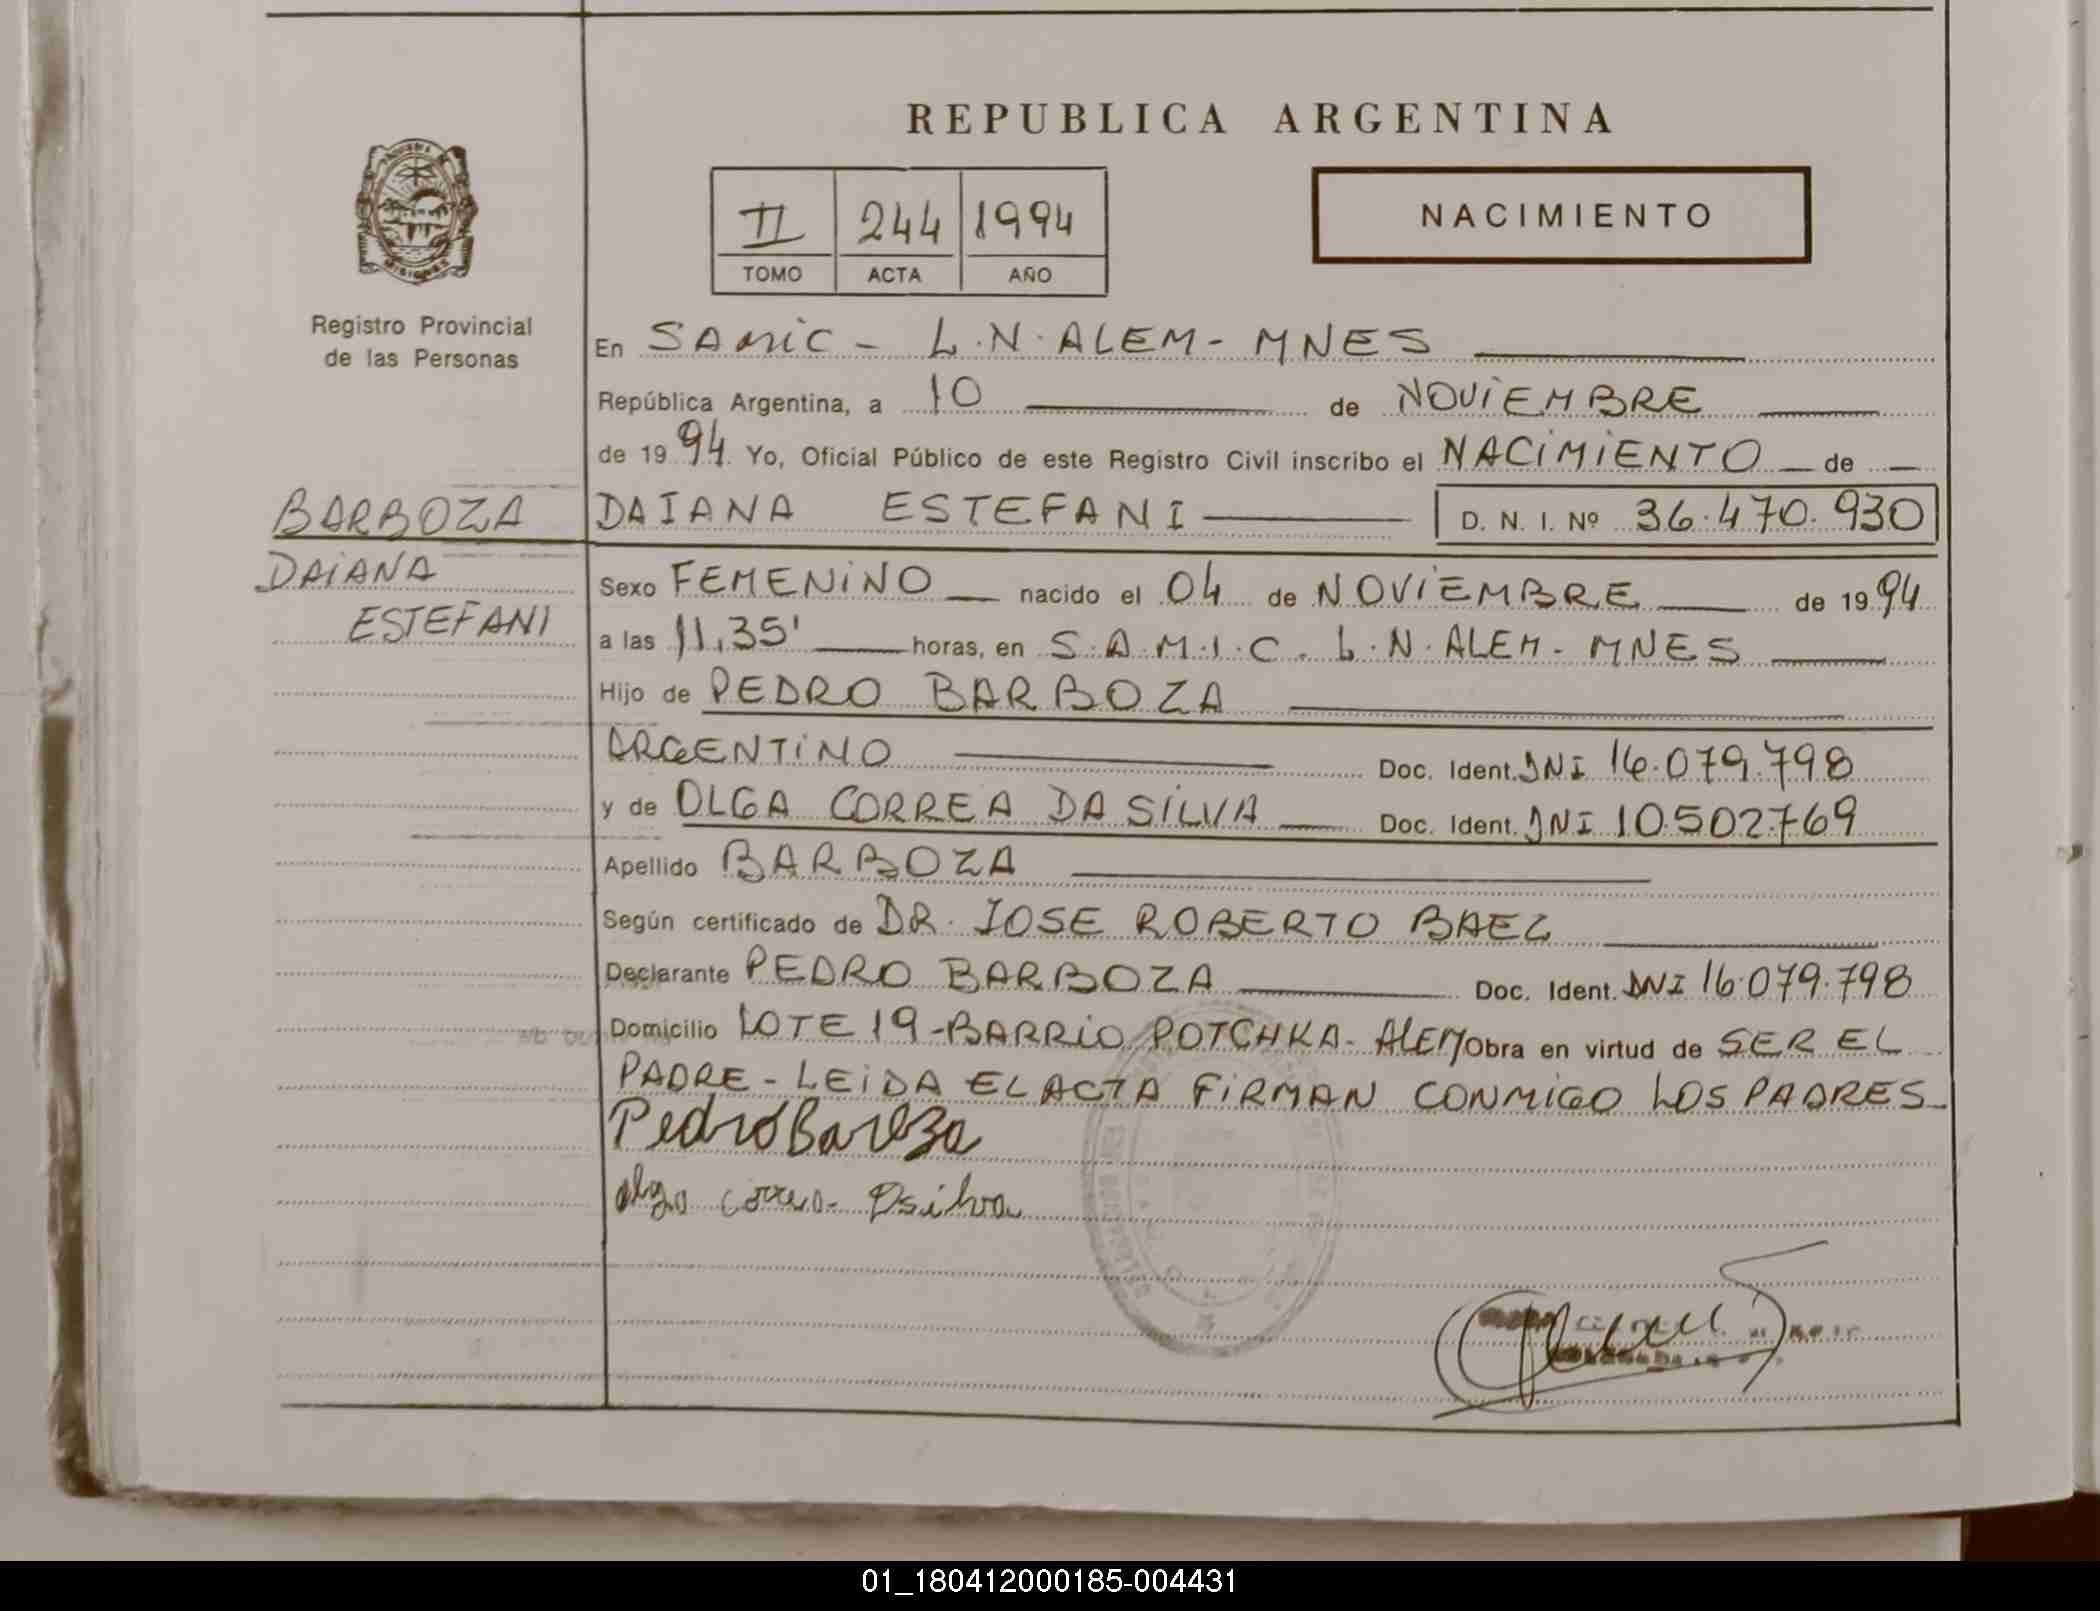 REPUBLICA ARGENTINA
II 244 1994
TOMO ACTA AÑO
NACIMIENTO
MISIONES
Registro Provincial
de las Personas
En SAMIC - L.N. ALEM - MNES
República Argentina, a 10 de NOVIEMBRE
de 1994. Yo, Oficial Público de este Registro Civil inscribo el NACIMIENTO de
BARBOZA
DAIANA
ESTEFANI
DAIANA ESTEFANI D. N. I. Nº 36.470.930
Sexo FEMENINO nacido el 04 de NOVIEMBRE de 1994
a las 11,35' horas, en S.A.M.I.C. L.N. ALEM - MNES
Hijo de PEDRO BARBOZA
ARGENTINO Doc. Ident. DNI 16.079.798
y de OLGA CORREA DA SILVA Doc. Ident. DNI 10.502.769
Apellido BARBOZA
Según certificado de DR. JOSE ROBERTO BAEZ
Declarante PEDRO BARBOZA Doc. Ident. DNI 16.079.798
Domicilio LOTE 19 - BARRIO POTCHKA - ALEM Obra en virtud de SER EL
PADRE - LEIDA EL ACTA FIRMAN CONMIGO LOS PADRES
Pedro Barboza
olga correa Dsilva
01_180412000185-004431